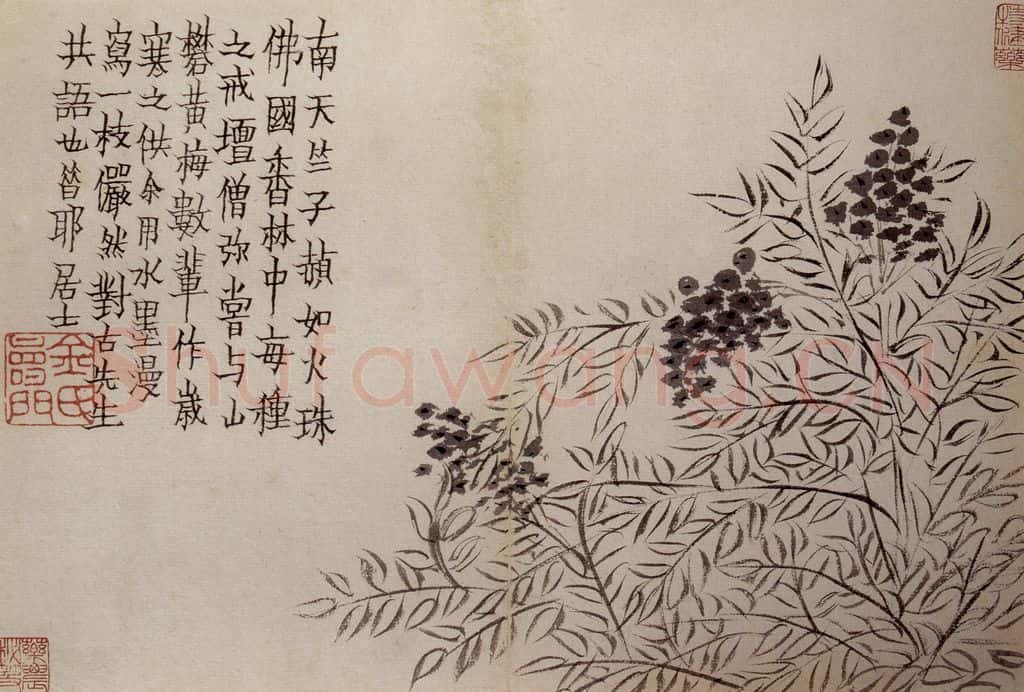 南天竺子頳如火珠
佛國香林中每種
之戒壇僧弥嘗与山
礬黃梅數輩作歲
寒之供余用水墨漫
寫一枝儼然對古先生
共語也昔耶居士
金氏
Shufawang.CN